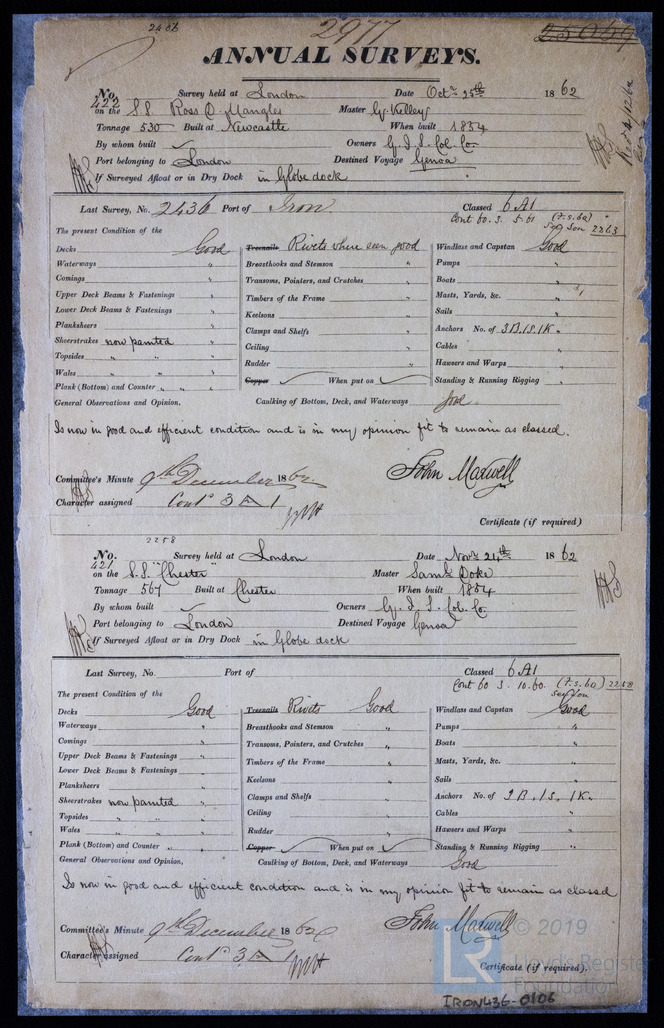 2406 2977 25069
ANNUAL SURVEYS.
No. 422 Survey held at London Date Octr 25th 1862
on the S.S. Ross D. Mangles Master G. Kelley
Tonnage 530 Built at Newcastle When built 1854
By whom built Owners G. I. S. Col. Co.
Port belonging to London Destined Voyage Genoa
If Surveyed Afloat or in Dry Dock in Globe dock
Last Survey, No. 2436 Port of Iron. Classed 6 A1
Cont 60. S. 5. 61 (7.s.6a)
2263
The present Condition of the
Decks Good Treenails Rivets where seen good Windlass and Capstan Good
Waterways " Breasthooks and Stemson " Pumps "
Comings " Transoms, Pointers, and Crutches " Boats "
Upper Deck Beams & Fastenings " Timbers of the Frame " Masts, Yards, &c. "
Lower Deck Beams & Fastenings " Keelsons " Sails "
Planksheers " Clamps and Shelfs " Anchors No. of 3B.1S.1K "
Sheerstrakes now painted Ceiling " Cables "
Topsides " " " Rudder " Hawsers and Warps "
Wales " " " Copper When put on Standing & Running Rigging "
Plank (Bottom) and Counter " " "
General Observations and Opinion, Caulking of Bottom, Deck, and Waterways good
Is now in good and efficient condition and is in my opinion fit to remain as classed.
Committee's Minute 9th December 1862 John Maxwell
Character assigned Contd 3 A 1
Certificate (if required)
2258
No. 421 Survey held at London Date Novr 24th 1862
on the S.S. "Chester" Master Saml Doke
Tonnage 567 Built at Chester When built 1854
By whom built Owners G. I. S. Col. Co.
Port belonging to London Destined Voyage Genoa
If Surveyed Afloat or in Dry Dock in Globe dock
Last Survey, No. Port of Classed 6 A1
Cont 60 S. 10. 60. (7.s.60) 2258
The present Condition of the
Decks Good Treenails Rivets Good Windlass and Capstan Good
Waterways " Breasthooks and Stemson " Pumps "
Comings " Transoms, Pointers, and Crutches " Boats "
Upper Deck Beams & Fastenings " Timbers of the Frame " Masts, Yards, &c. "
Lower Deck Beams & Fastenings " Keelsons " Sails "
Planksheers " Clamps and Shelfs " Anchors No. of 3B.1S.1K.
Sheerstrakes now painted " Ceiling " Cables "
Topsides " " " Rudder " Hawsers and Warps "
Wales " " " Copper When put on Standing & Running Rigging "
Plank (Bottom) and Counter " "
General Observations and Opinion, Caulking of Bottom, Deck, and Waterways Good
Is now in good and efficient condition and is in my opinion fit to remain as classed
Committee's Minute 9th December 1862 John Maxwell
Character assigned Contd 3 A 1
Certificate (if required).
LR © 2019
Lloyd's Register
Foundation
IRON436-0106